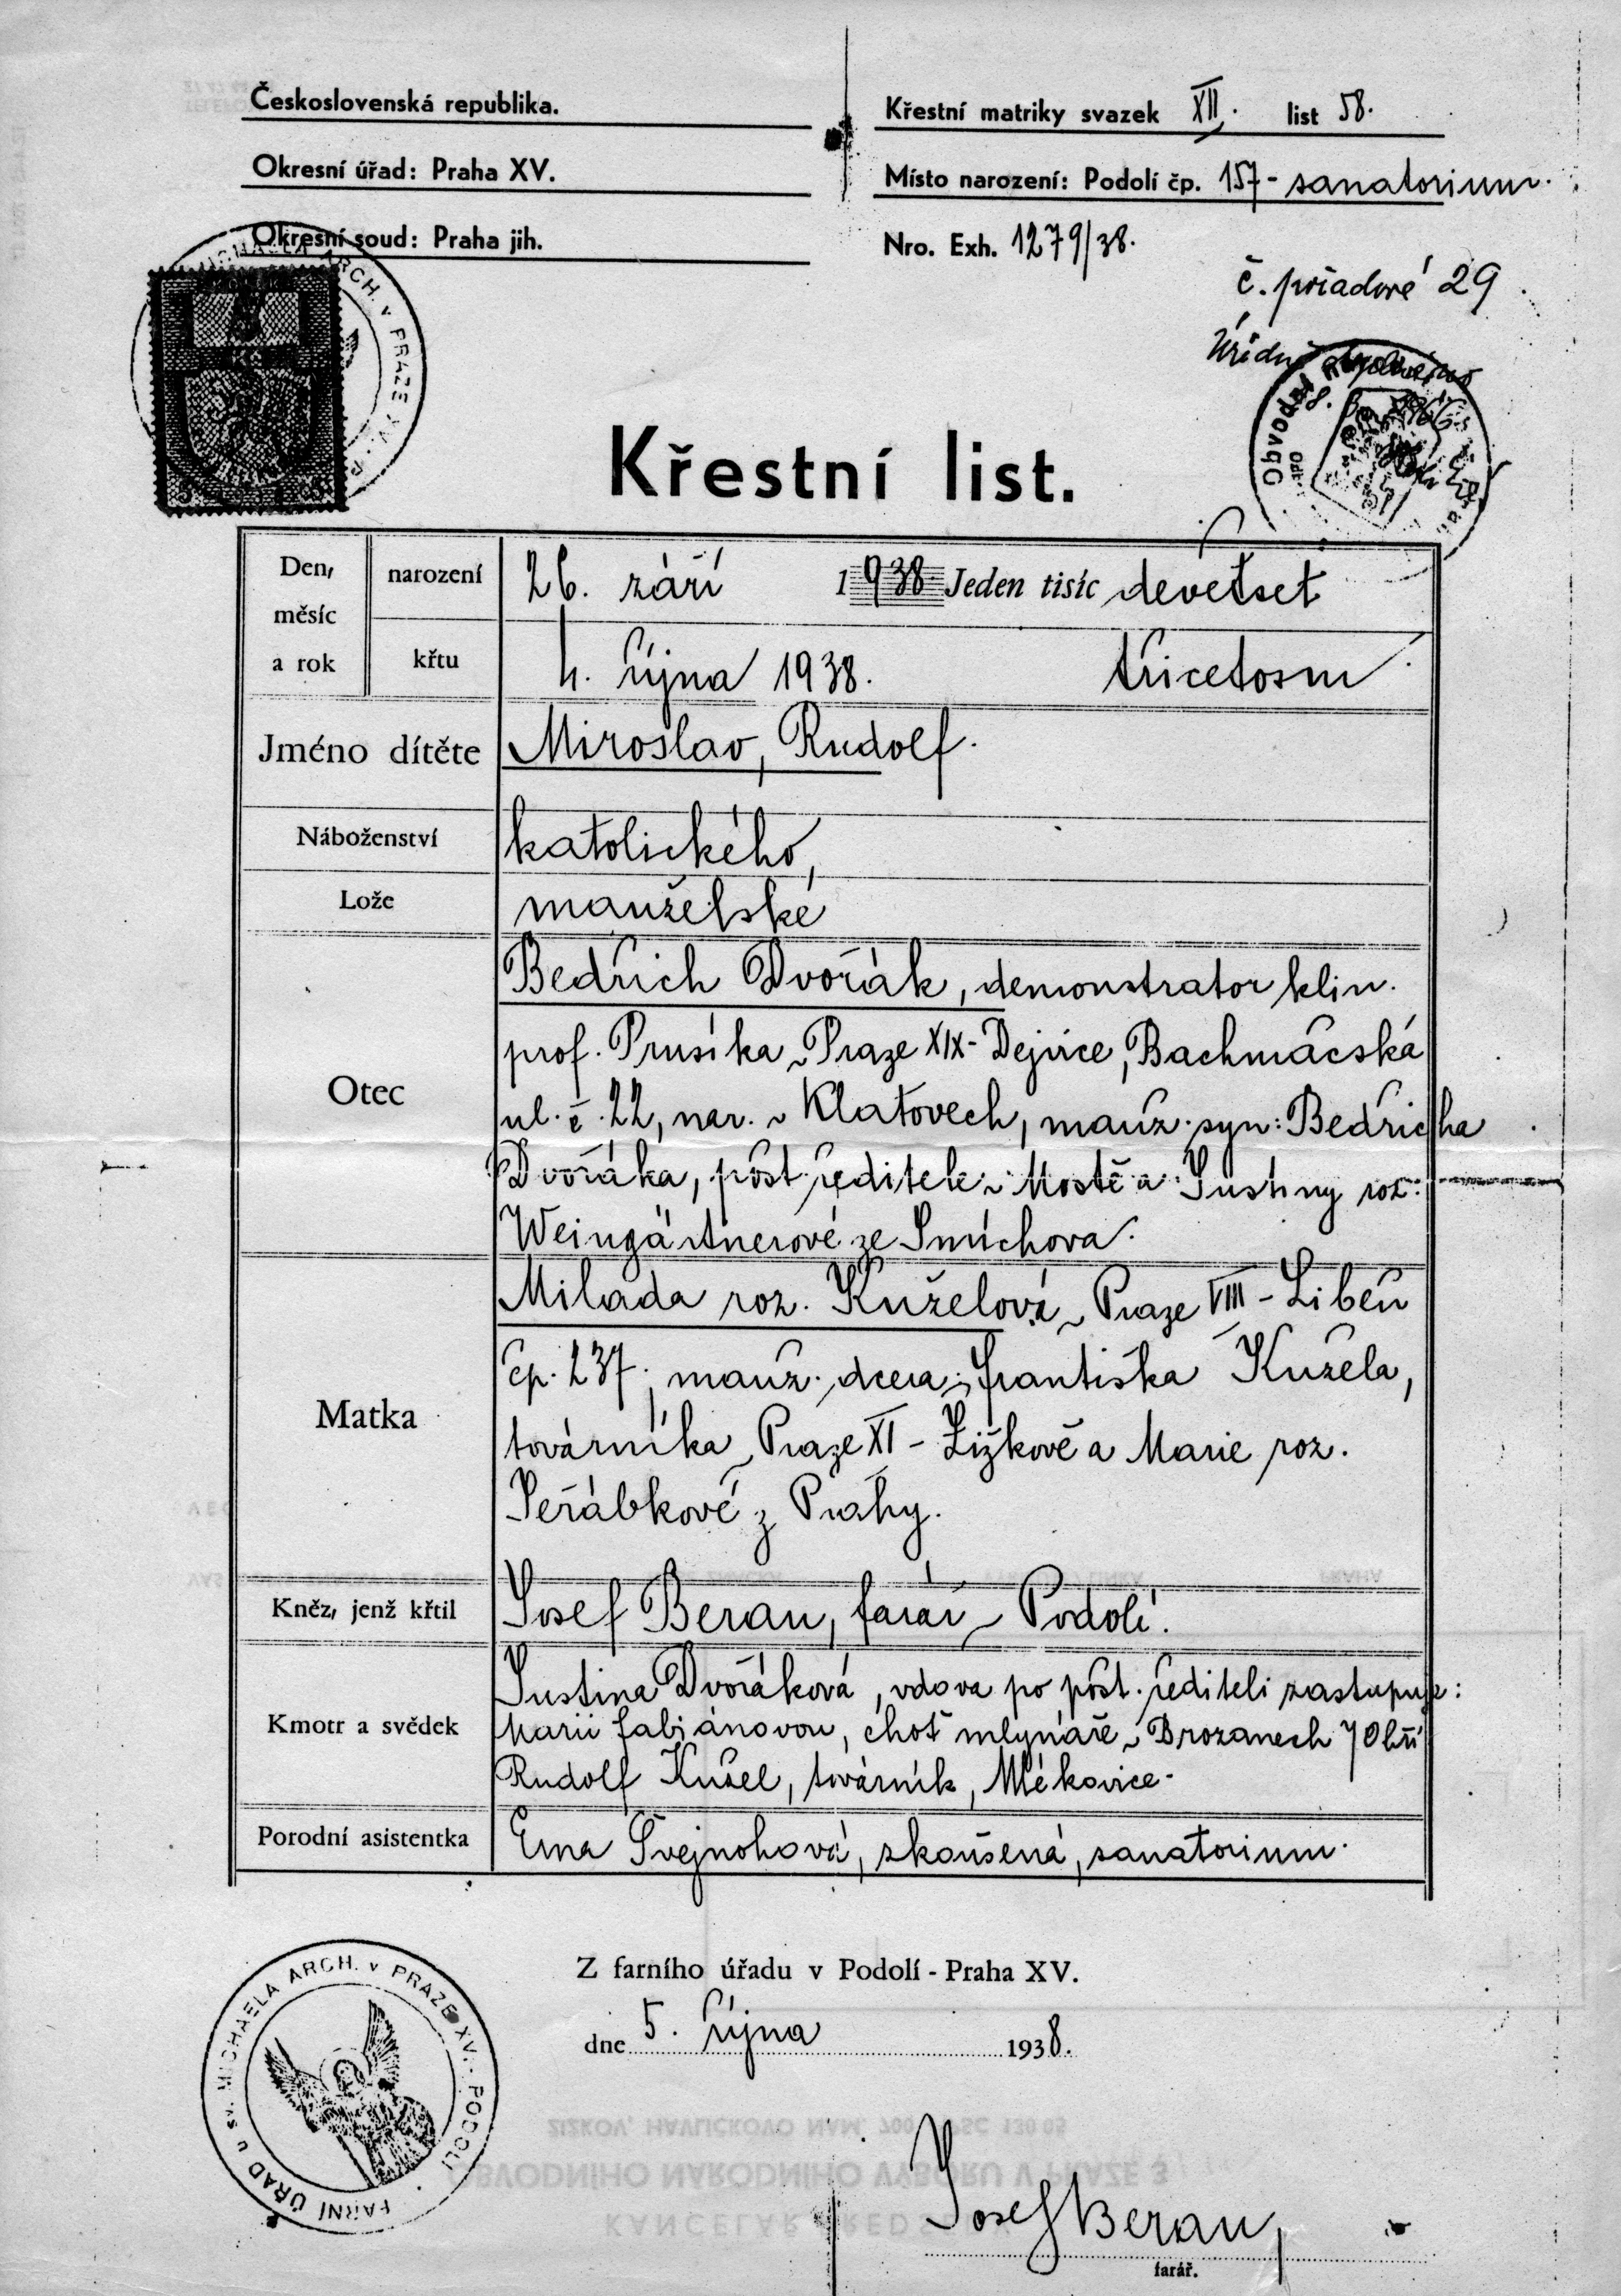 Československá republika.
Okresní úřad: Praha XV.
Okresní soud: Praha jih.
Křestní matriky svazek XII. list 58.
Místo narození: Podolí čp. 157 - sanatorium.
Nro. Exh. 1279/38.
č. pořadové 29
Úředně
Obvodní
ARCH. v PRAZE XV.
Křestní list.
Den, měsíc a rok
narození 26. září 1938 Jeden tisíc devětset
křtu 4. října 1938. třicetosm
Jméno dítěte Miroslav, Rudolf.
Náboženství katolického,
Lože manželské
Otec
Bedřich Dvořák, demonstrator klin.
prof. Prusíka v Praze XIX - Dejvice, Bachmačská
ul. č. 22, nar. v Klatovech, manž. syn: Bedřicha
Dvořáka, pošt. ředitele v Mostě a Justiny roz:
Weingärtnerové ze Smíchova.
Matka
Milada roz. Kuželová v Praze VIII - Libeň
čp. 237, manž. dcera: Františka Kužela,
továrníka v Praze XI - Žižkově a Marie roz.
Jeřábkové z Prahy.
Kněz, jenž křtil Josef Beran, farář v Podolí.
Kmotr a svědek
Justina Dvořáková, vdova po pošt. řediteli zastupuje:
Marii Fabiánovou, choť mlynáře v Brozanech / Ohří
Rudolf Kužel, továrník, Mlékovice -
Porodní asistentka Ema Švejnohová, zkoušená, sanatorium.
Z farního úřadu v Podolí - Praha XV.
dne 5. října 1938.
FARNÍ ÚŘAD u sv. MICHAELA ARCH. v PRAZE XV. - PODOLÍ
ŽIŽKOV, HAVLÍČKOVO NÁM. 700 PSČ 130 03
OBVODNÍHO NÁRODNÍHO VÝBORU V PRAZE 3
Josef Beran,
farář.